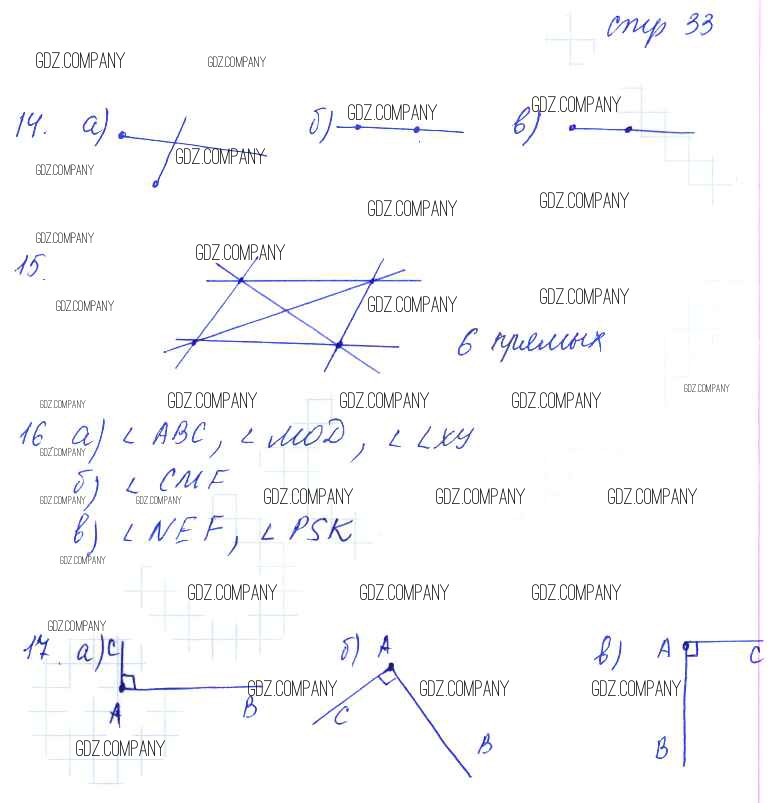 стр 33
GDZ.COMPANY GDZ.COMPANY
GDZ.COMPANY GDZ.COMPANY
14. а) б) в)
GDZ.COMPANY
GDZ.COMPANY
GDZ.COMPANY GDZ.COMPANY
GDZ.COMPANY
GDZ.COMPANY
15.
GDZ.COMPANY GDZ.COMPANY GDZ.COMPANY
6 прямых
GDZ.COMPANY
GDZ.COMPANY GDZ.COMPANY GDZ.COMPANY GDZ.COMPANY
16 а) ∠ ABC, ∠ MOD, ∠ LXY
GDZ.COMPANY
б) ∠ CMF
GDZ.COMPANY GDZ.COMPANY GDZ.COMPANY GDZ.COMPANY GDZ.COMPANY
в) ∠ NEF, ∠ PSK
GDZ.COMPANY
GDZ.COMPANY GDZ.COMPANY GDZ.COMPANY
GDZ.COMPANY
17. а) C б) A в) A C
GDZ.COMPANY GDZ.COMPANY GDZ.COMPANY
A B C
GDZ.COMPANY B B